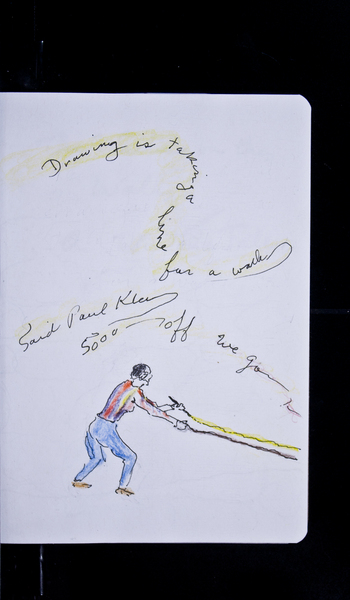 Drawing is taking a line for a walk
Said Paul Klee
Sooo — off we go